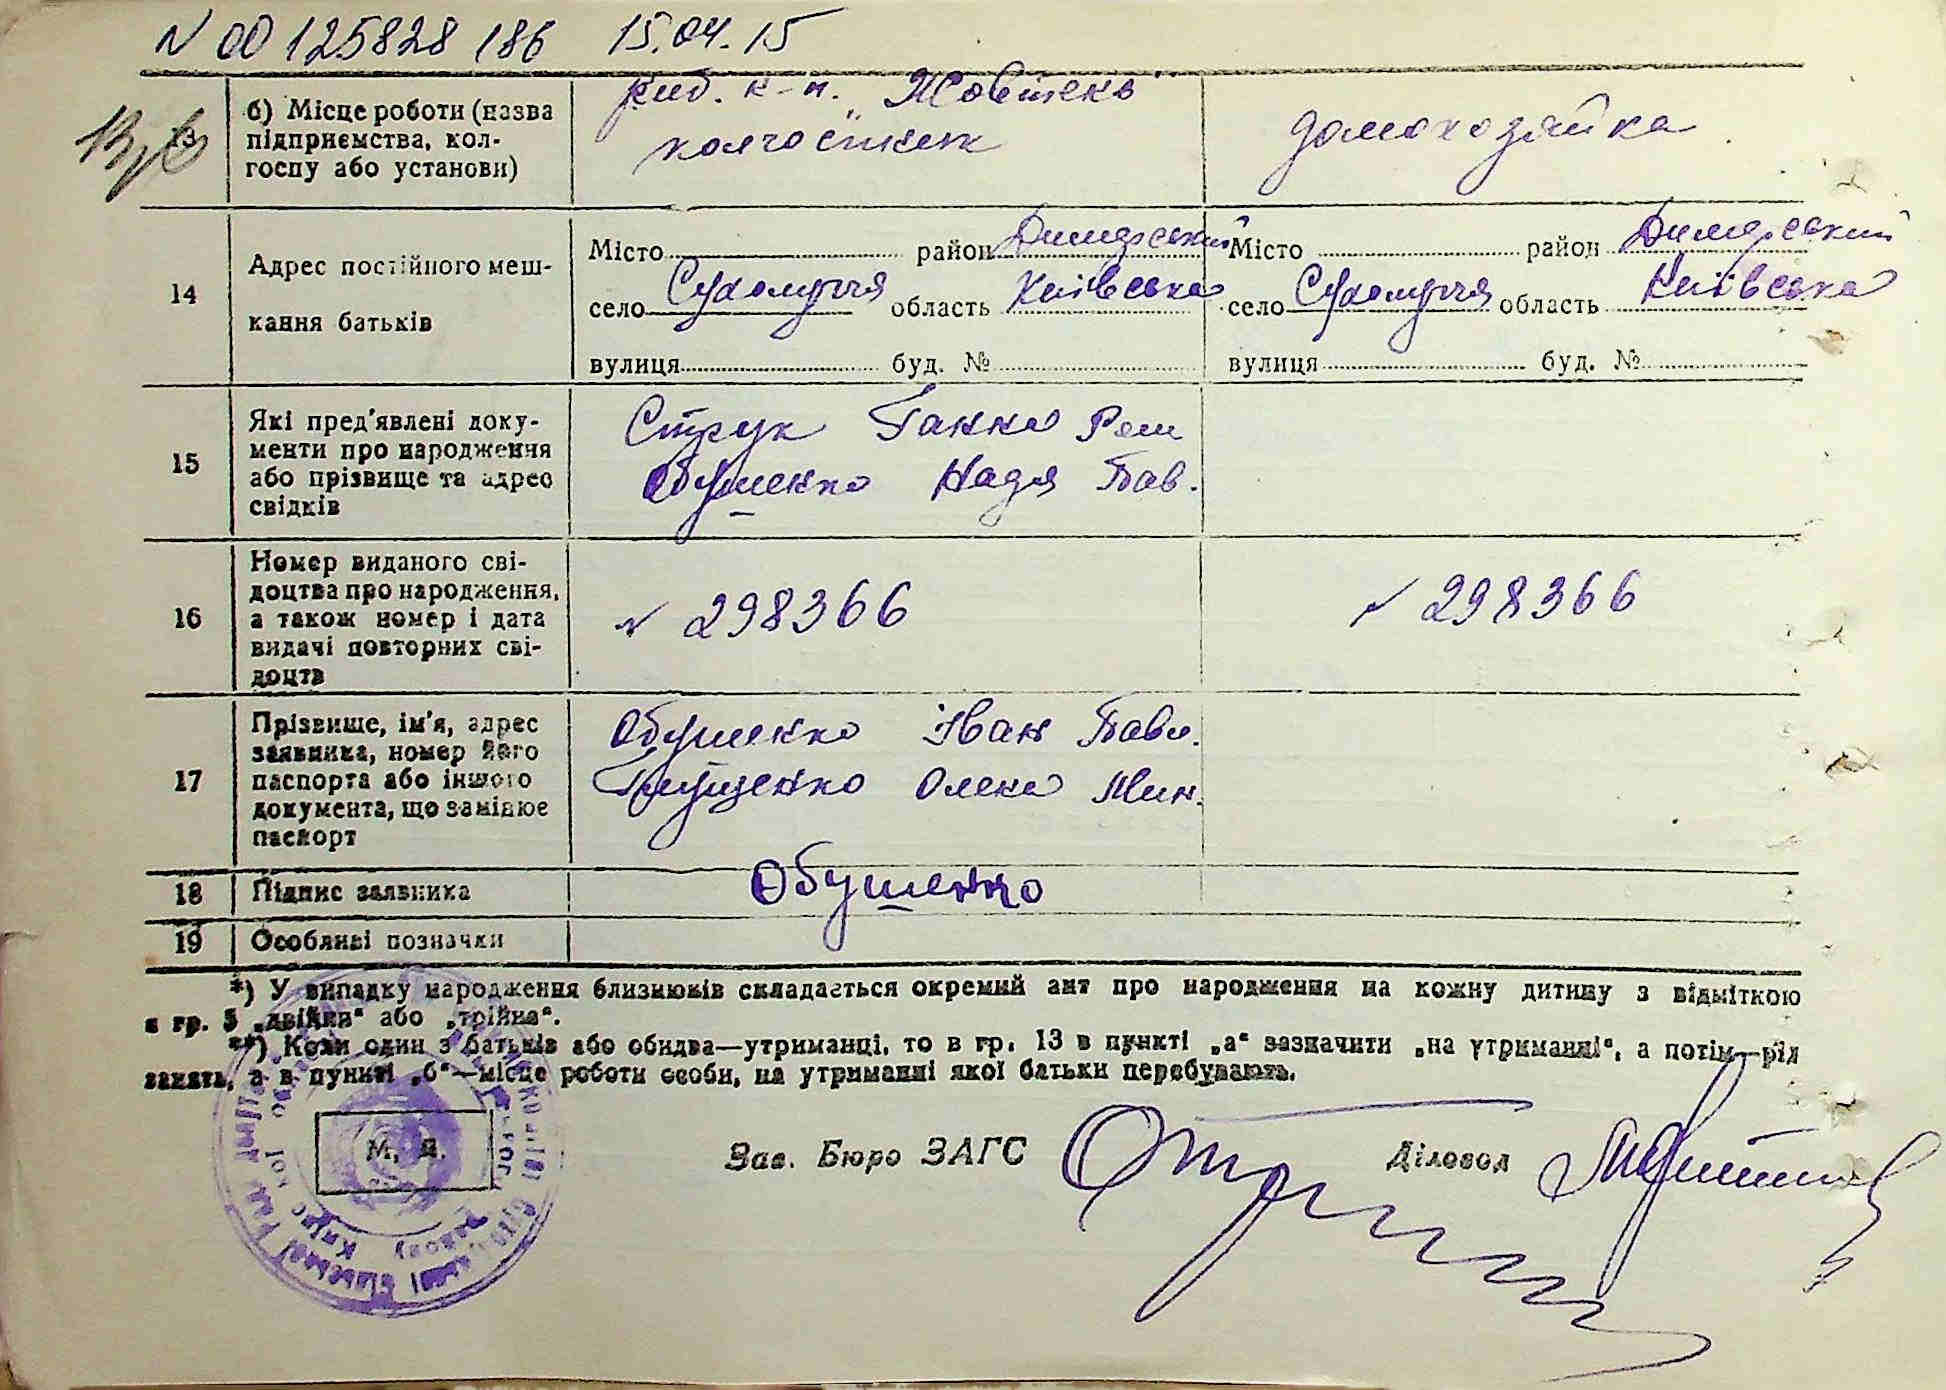 N 00 125828 186 15.04.15
13
б) Місце роботи (назва
підприємства, кол-
госпу або установи)
риб. к-п. „Жовтень"
колгоспник
домохозяйка
14
Адрес постійного меш-
кання батьків
Місто район Димерський
село Сухолуччя область Київська
вулиця буд. №
Місто район Димерський
село Сухолуччя область Київська
вулиця буд. №
15
Які пред'явлені доку-
менти про народження
або прізвище та адрес
свідків
Струк Ганна Ром
Обушенко Надя Пав.
16
Номер виданого сві-
доцтва про народження,
а також номер і дата
видачі повторних сві-
доцтв
N 298366
N 298366
17
Прізвище, ім'я, адрес
заявника, номер його
паспорта або іншого
документа, що замінює
паспорт
Обушенко Іван Павл.
Олека Мик.
18
Підпис заявника
Обушенко
19
Особливі позначки
*) У випадку народження близнюків складається окремий акт про народження на кожну дитину з відміткою
в гр. 5 „двійня" або „трійня".
**) Коли один з батьків або обидва—утриманці, то в гр. 13 в пункті „а" зазначити „на утриманні", а потім—рід
занять, а в пункті „б"—місце роботи особи, на утриманні якої батьки перебувають.
М. П.
Зав. Бюро ЗАГС
Діловод